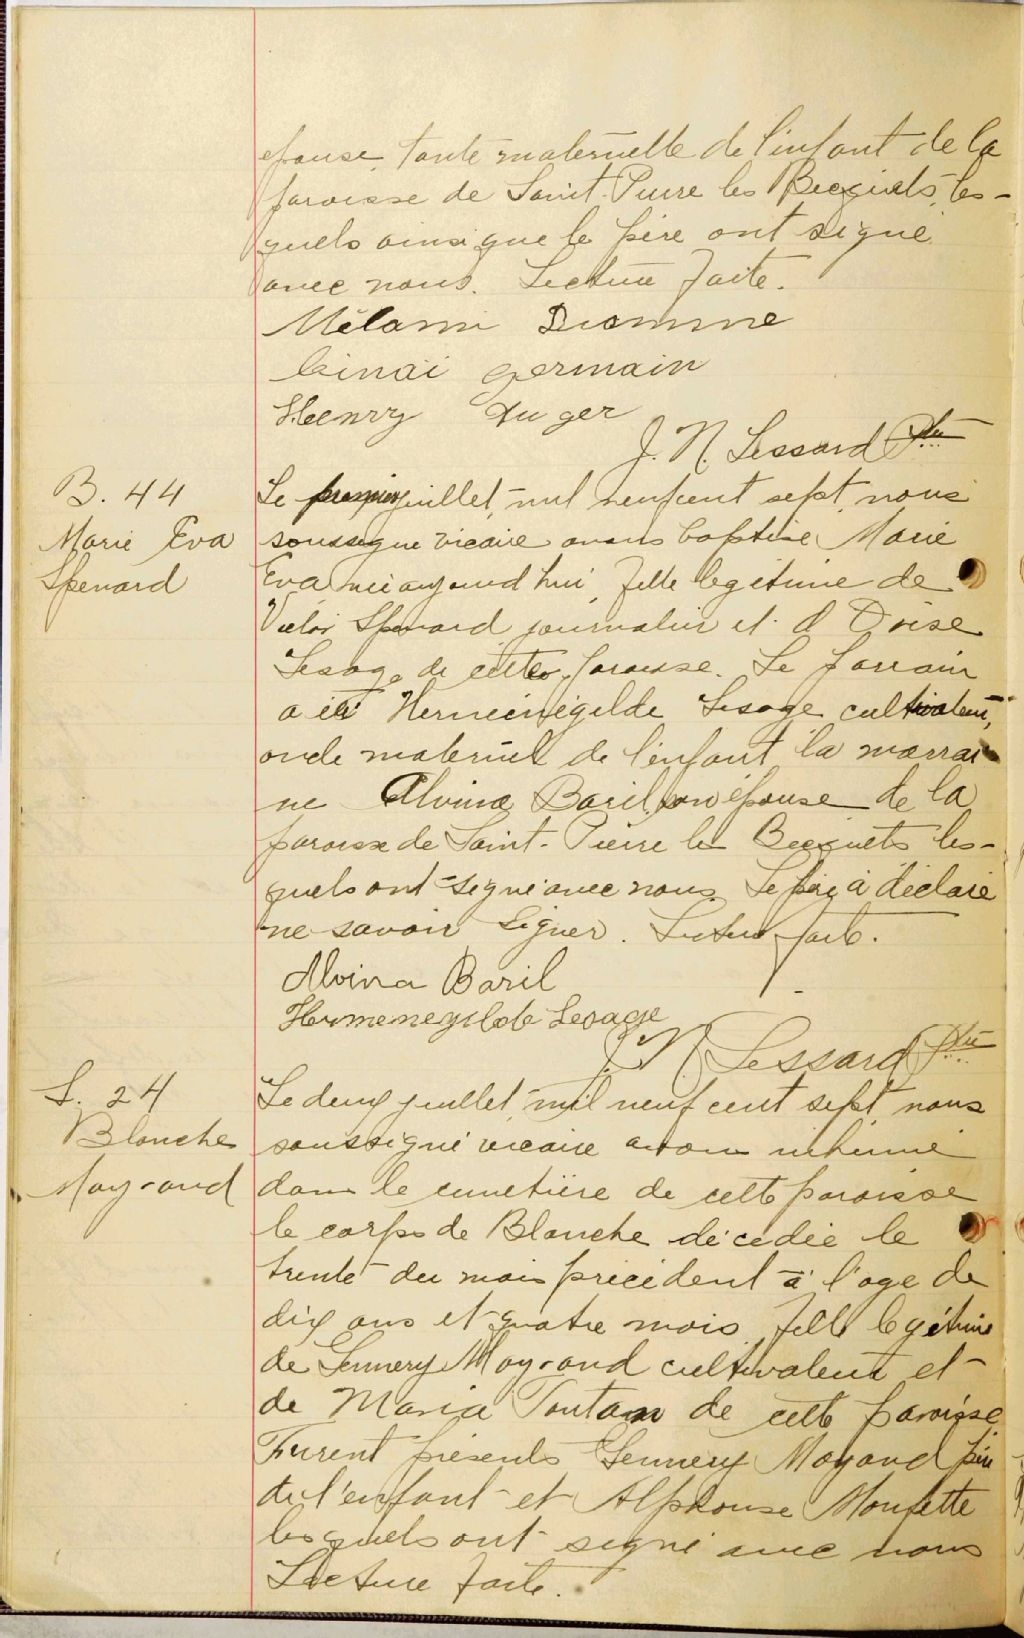 epouse tante maternelle de l'enfant de la
paroisse de Saint-Pierre les Becquets, les-
quels ainsi que le père ont signé
avec nous. Lecture faite.
Mélani Dionnne
Cinaï germain
Heenry Auger
J. N. Lessard Ptre
B. 44
Marie Eva
Spenard
Le premier juillet, mil neufcent sept, nous
soussigne vicaire avons baptise Marie
Eva née aujourd'hui, fille legitime de
Victor Spenard journalier et d'Orise
Lesage de cette paroisse. Le parrain
a été Hermenégilde Lesage cultivateur,
oncle maternel de l'enfant la marrai
ne Alvina Baril son épouse de la
paroisse de Saint-Pierre les Becquets les-
quels ont signé avec nous. Le père a déclaré
ne savoir signer. Lecture faite.
Alvina Baril
Hermenegilde Lesage
J. N. Lessard Ptre
S. 24
Blanche
May-and
Le deux juillet, mil neuf cent sept nous
soussigné vicaire avons inhumé
dans le cimetière de cette paroisse
le corps de Blanche décédée le
trente du mois précédent à l'age de
dix ans et quatre mois, fille legitime
de Gennery May-and cultivateur et
de Maria Toutan de cette paroisse
Furent présents Gennery Mayand père
de l'enfant et Alphonse Monfette
lesquels ont signé avec nous
Lecture faite.